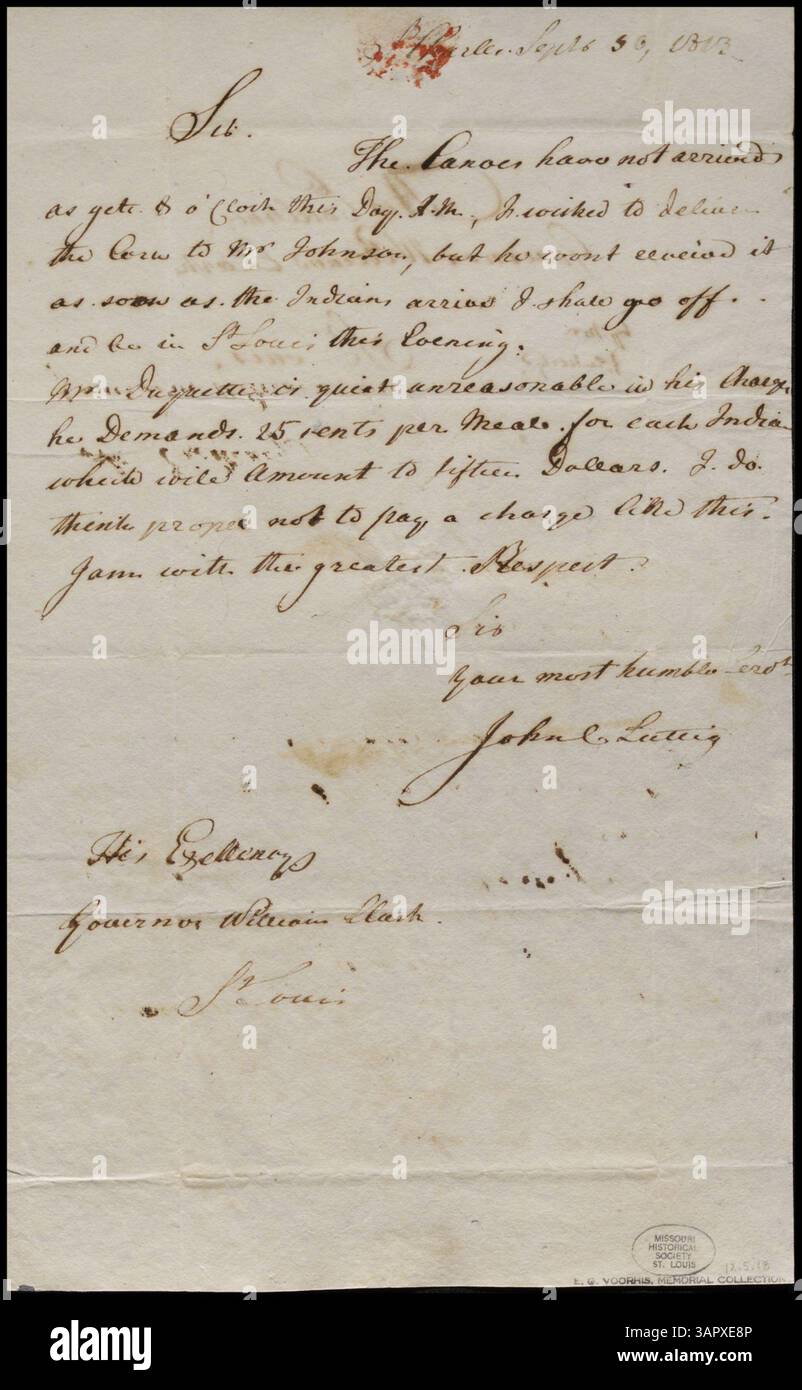 Charles Septb 30, 1813
Sir.
The Canoes have not arrived
as yett 8 o'Clock this Day A.M., I wished to deliver
the Corn to Mr Johnson, but he wont receive it
as soon as the Indians arrive I shall go off.
and be in St Louis this Evening.
Mr Duquette is quiet unreasonable in his Charge
he Demands 25 cents per Meal for each Indian
which will Amount to fifteen Dollars. I do
think proper not to pay a charge like this.
I am with the greatest Respect.
Sir
your most humble Servt
John C Luttig
His Exellency
Governor William Clark.
St Louis
MISSOURI
HISTORICAL
SOCIETY
ST. LOUIS
12.5.18
E. G. VOORHIS, MEMORIAL COLLECTION
a alamy
alamy
Image ID: 3APXE8P
www.alamy.com